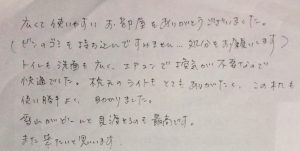 広くて使いやすいお部屋をありがとうございました。
(ビンのゴミを持ち込んですみません…処分をお願いします)
トイレも洗面も広く、エアコンで換気が不要なので
快適でした。枕元のライトもとてもありがたく、この机も
使い勝手よく、助かりました。
窓からどーんと見渡せるのも最高です。
また来たいと思います。